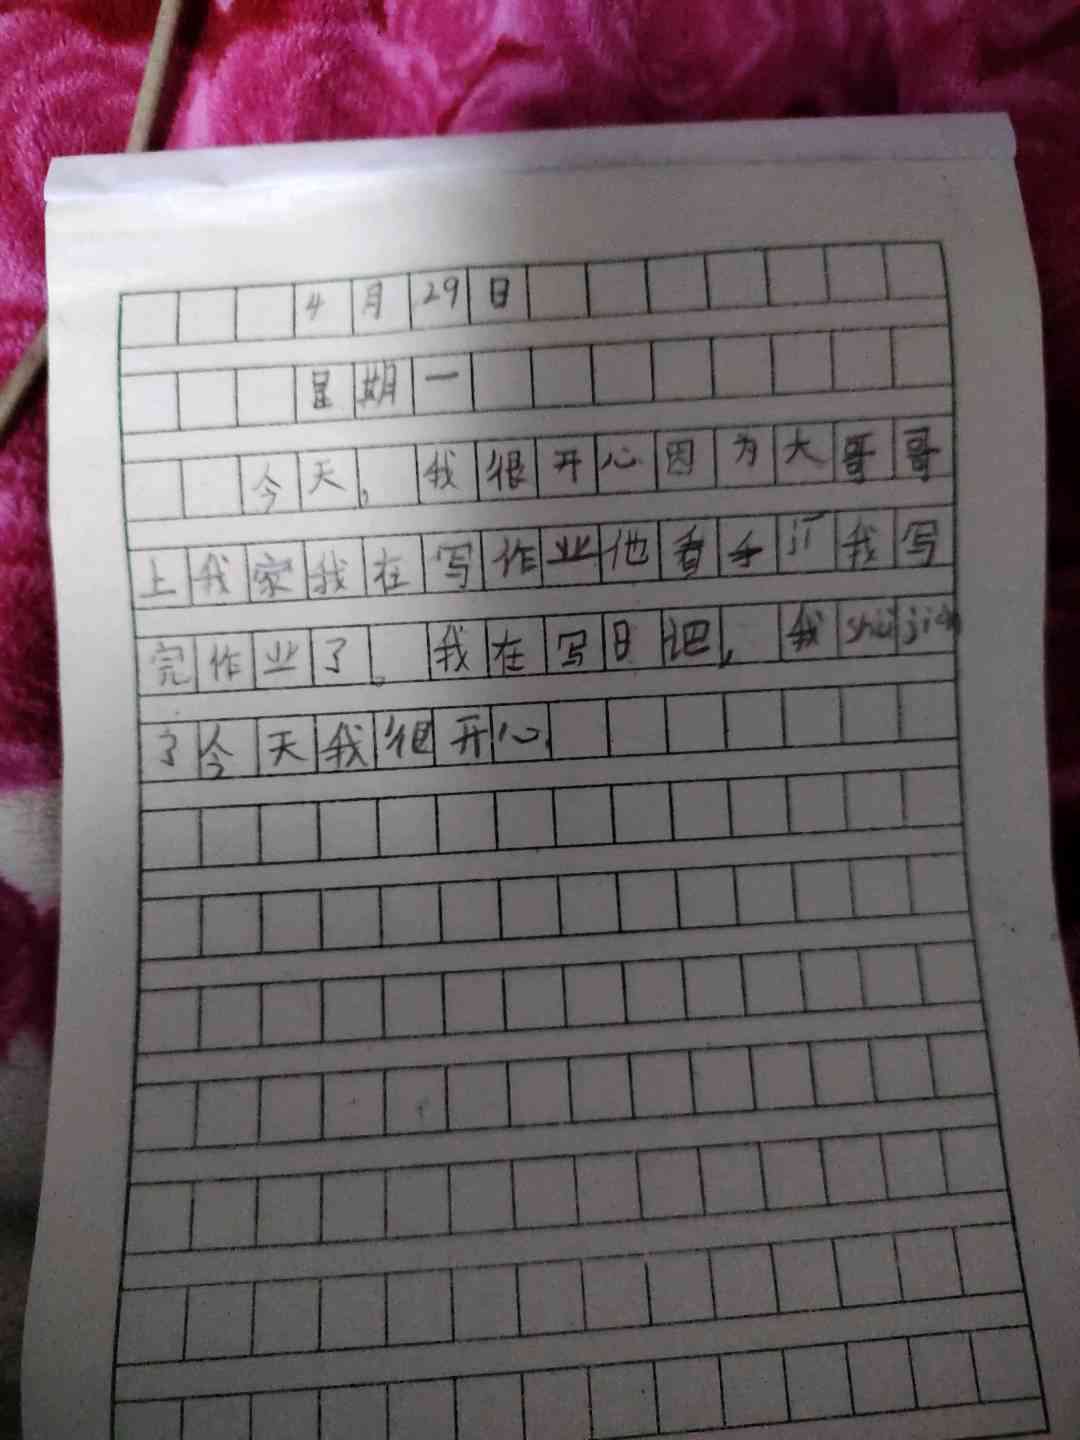 4月29日
星期一
今天,我很开心因为大哥哥
上我家我在写作业他看手jī我写
完作业了。我在写日把,我shuìjiào
了今天我很开心.